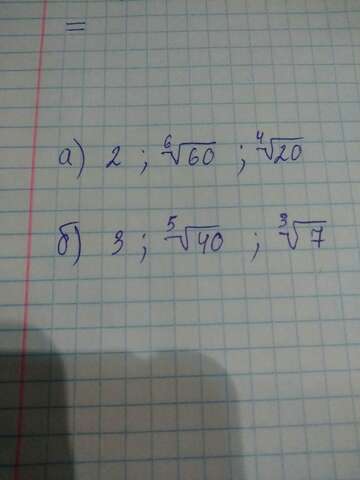 =
а) 2 ; ⁶√60 ; ⁴√20
б) 3 ; ⁵√40 ; ³√7